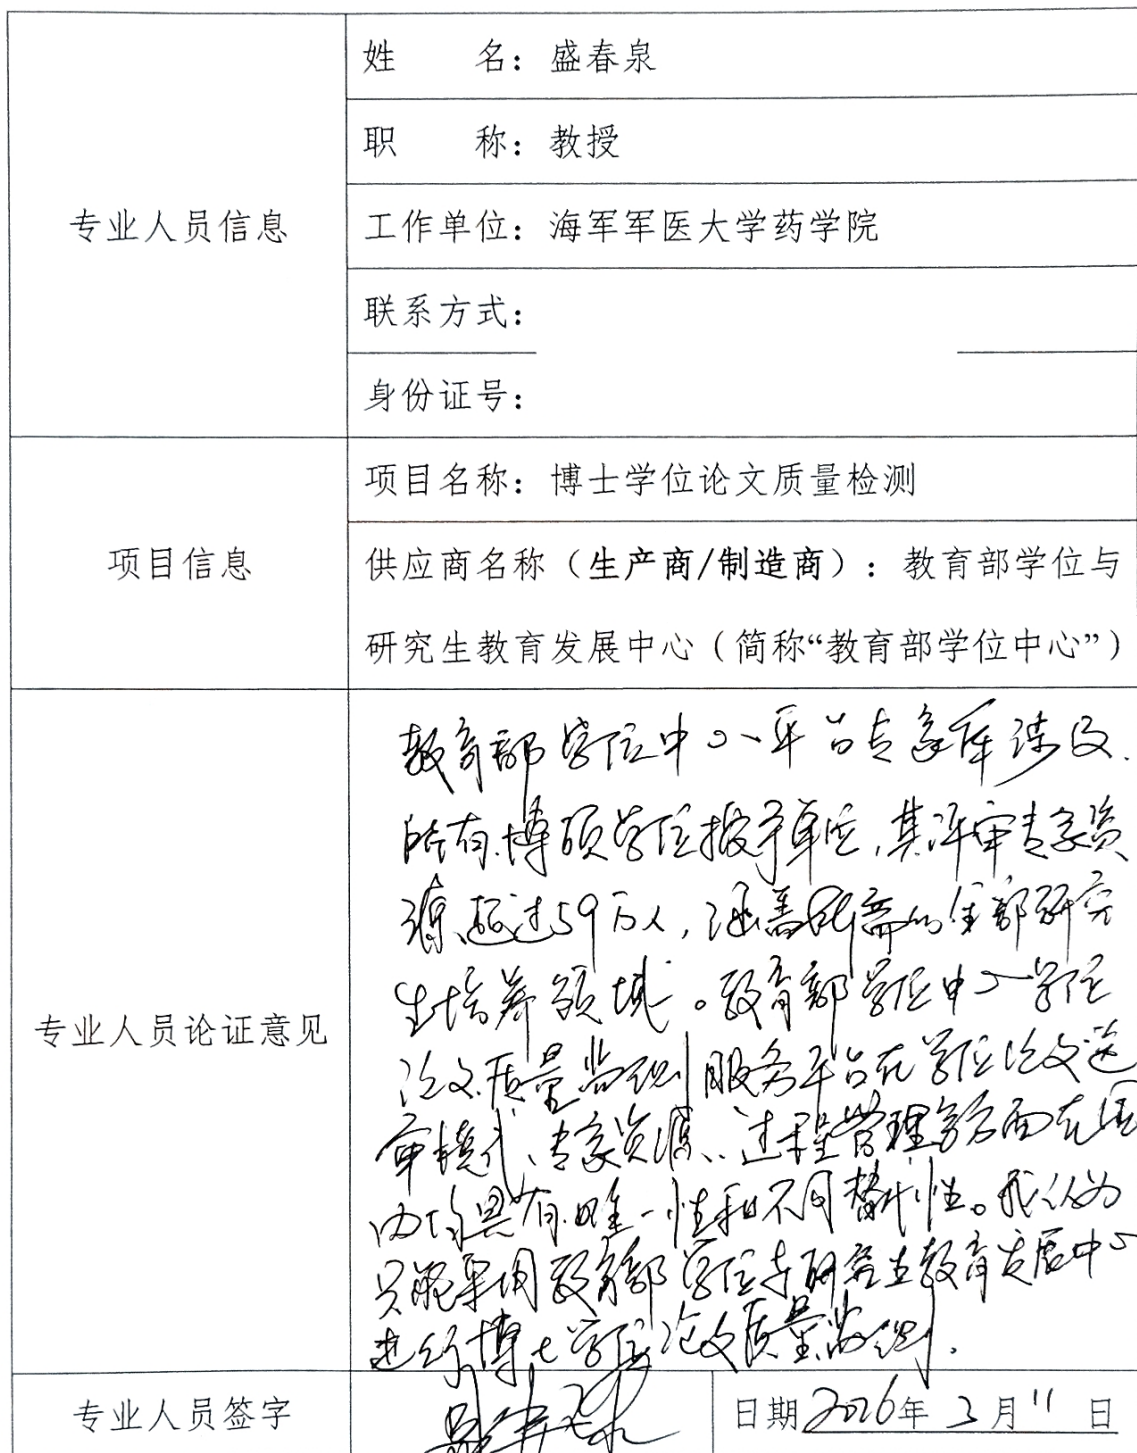 姓 名：盛春泉
职 称：教授
专业人员信息
工作单位：海军军医大学药学院
联系方式：
身份证号：
项目名称：博士学位论文质量检测
项目信息
供应商名称（生产商/制造商）：教育部学位与
研究生教育发展中心（简称“教育部学位中心”）
专业人员论证意见
教育部学位中心平台专家库涉及
所有博硕学位授予单位，其评审专家资
源超过59万人，涵盖所需的全部研究
生培养领域。教育部学位中心学位
论文质量监测服务平台在学位论文送
审模式、专家资源、过程管理等方面在国
内均具有唯一性和不可替代性。我认为
只能采用教育部学位与研究生教育发展中心
进行博士学位论文质量监测。
专业人员签字
盛春泉
日期2026年 3月11日